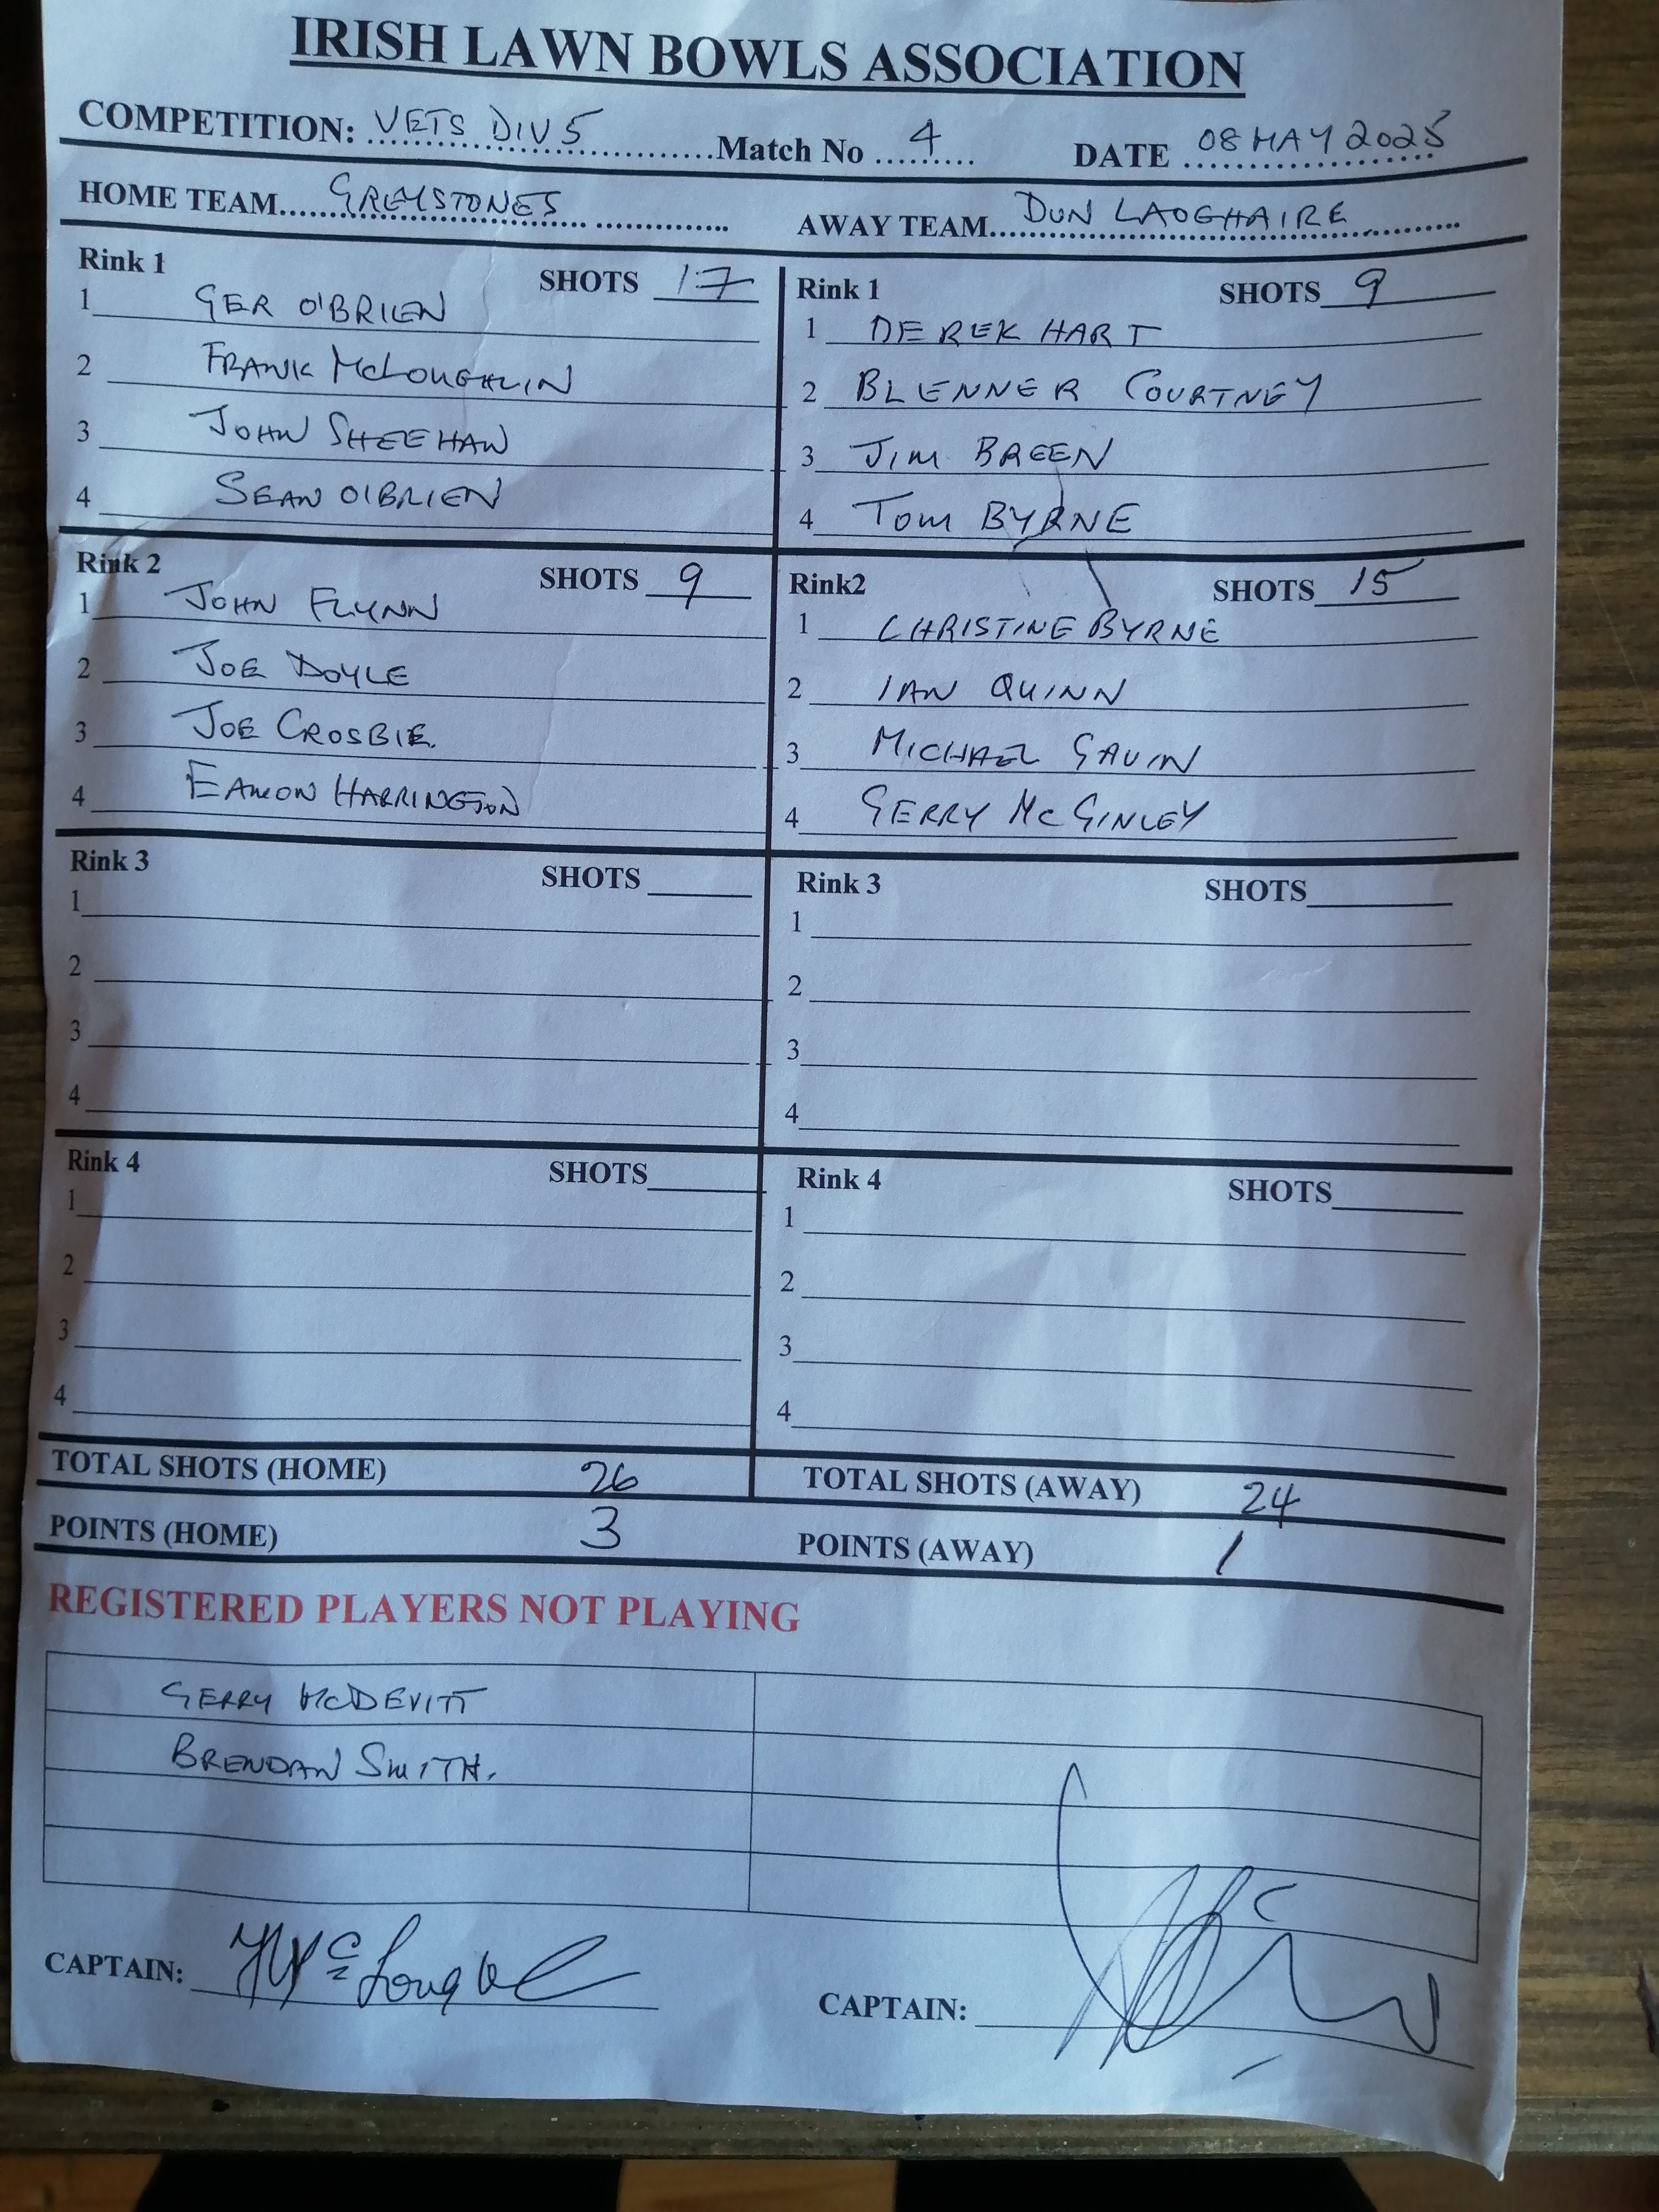 IRISH LAWN BOWLS ASSOCIATION
COMPETITION: VETS DIV 5 Match No 4 DATE 08 MAY 2025
HOME TEAM GREYSTONES AWAY TEAM DUN LAOGHAIRE
Rink 1 SHOTS 17
1 GER O'BRIEN
2 FRANK McLOUGHLIN
3 JOHN SHEEHAN
4 SEAN O'BRIEN
Rink 1 SHOTS 9
1 DEREK HART
2 BLENNER COURTNEY
3 JIM BREEN
4 TOM BYRNE
Rink 2 SHOTS 9
1 JOHN FLYNN
2 JOE DOYLE
3 JOE CROSBIE.
4 EAMON HARRINGTON
Rink2 SHOTS 15
1 CHRISTINE BYRNE
2 IAN QUINN
3 MICHAEL GAVIN
4 GERRY McGINLEY
Rink 3 SHOTS
1
2
3
4
Rink 3 SHOTS
1
2
3
4
Rink 4 SHOTS
1
2
3
4
Rink 4 SHOTS
1
2
3
4
TOTAL SHOTS (HOME) 26 TOTAL SHOTS (AWAY) 24
POINTS (HOME) 3 POINTS (AWAY) 1
REGISTERED PLAYERS NOT PLAYING
GERRY McDEVITT
BRENDAN SMITH.
CAPTAIN:
CAPTAIN: